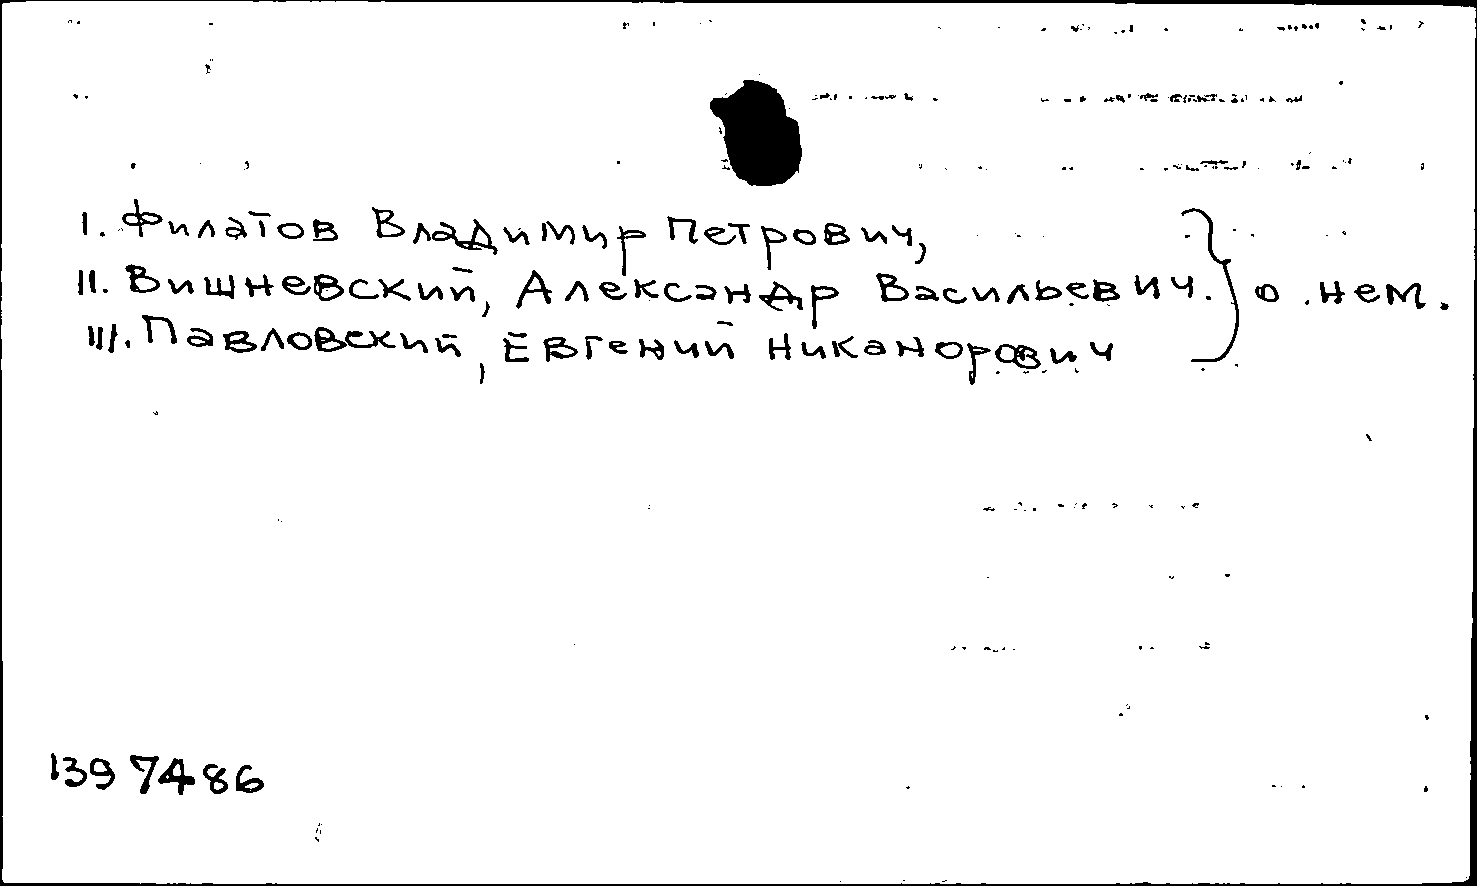 I. Филатов Владимир Петрович,
II. Вишневский, Александр Васильевич. } о нем.
III. Павловский, Евгений Никанорович
1397486